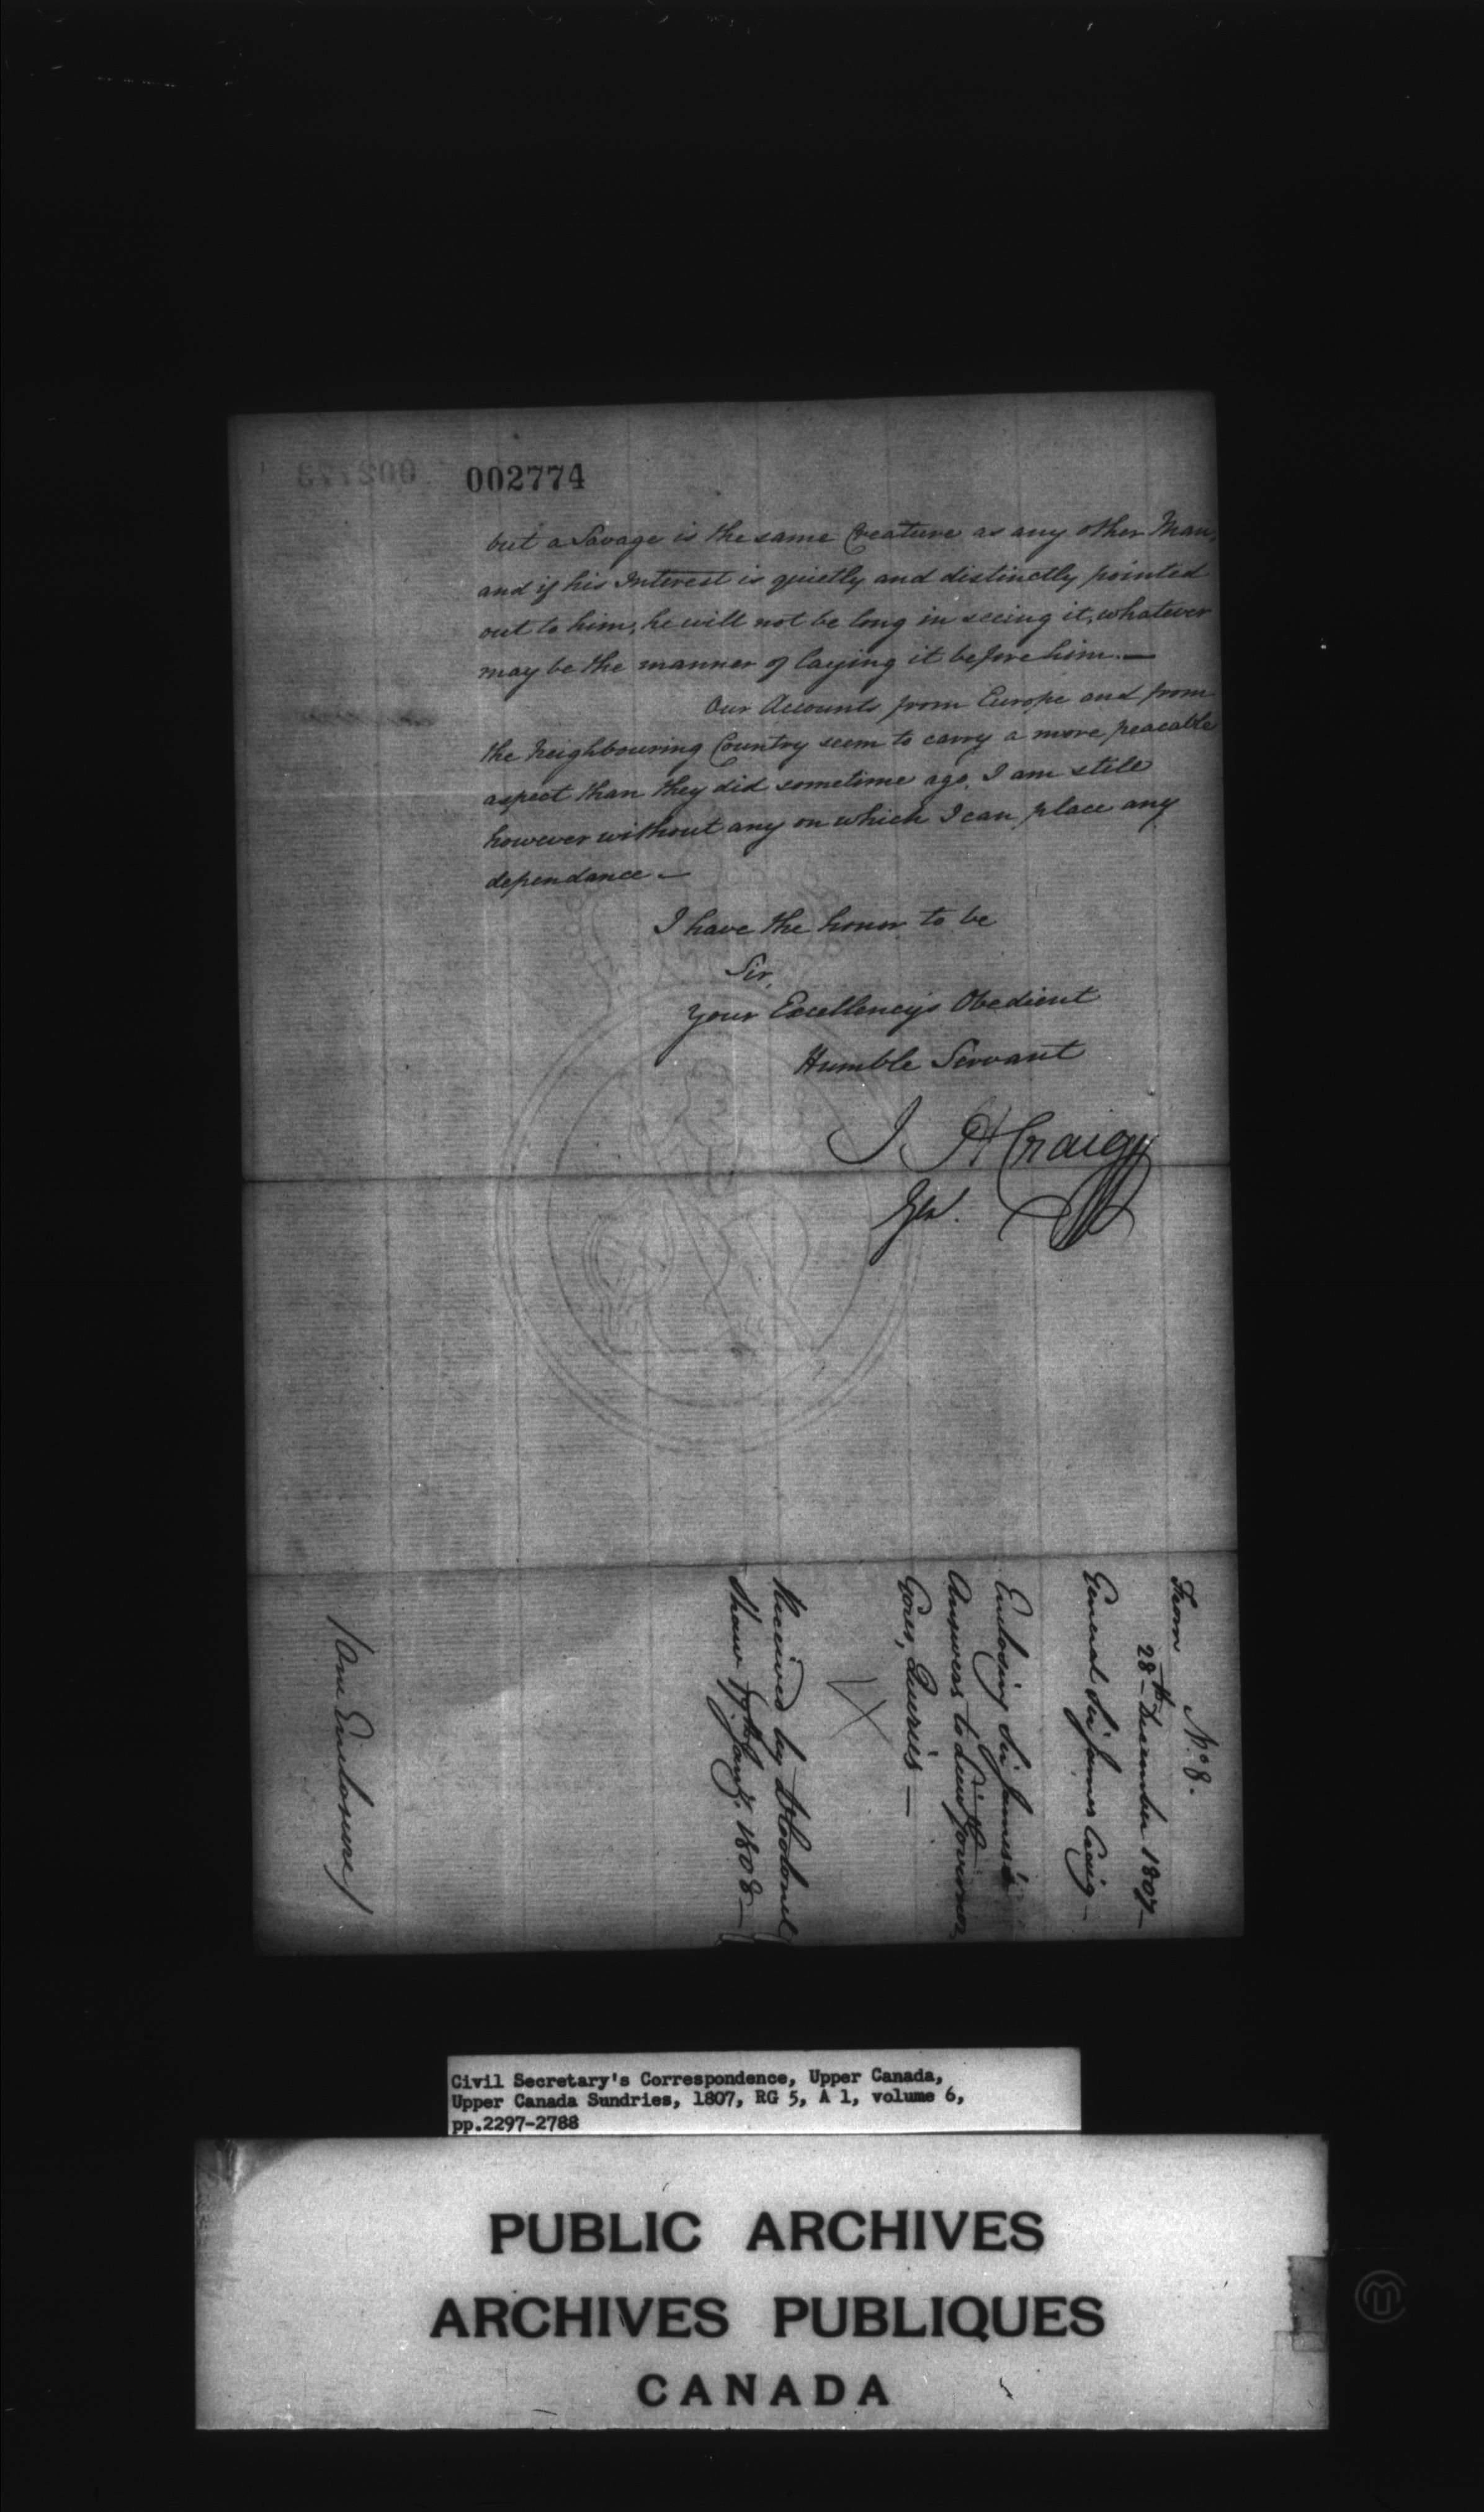 002774
but a Savage is the same Creature as any other Man,
and if his Interest is quietly and distinctly pointed
out to him, he will not be long in seeing it, whatever
may be the manner of laying it before him.—
Our Accounts from Europe and from
the Neighbouring Country seem to carry a more peacable
aspect than they did sometime ago, I am still
however without any on which I can place any
dependance —
I have the honor to be
Sir,
Your Excellency's Obedient
Humble Servant
J H Craig
No. 8.
From
28th December 1807—
General Sir James Craig—
Enclosing Sir James's
Answers to Lieut Governor
Gores, Queries —
Received by Lt Colonel
Shaw Jany. 1808—
/One Enclosure/
Civil Secretary's Correspondence, Upper Canada,
Upper Canada Sundries, 1807, RG 5, A 1, volume 6,
pp.2297-2788
PUBLIC ARCHIVES
ARCHIVES PUBLIQUES
CANADA